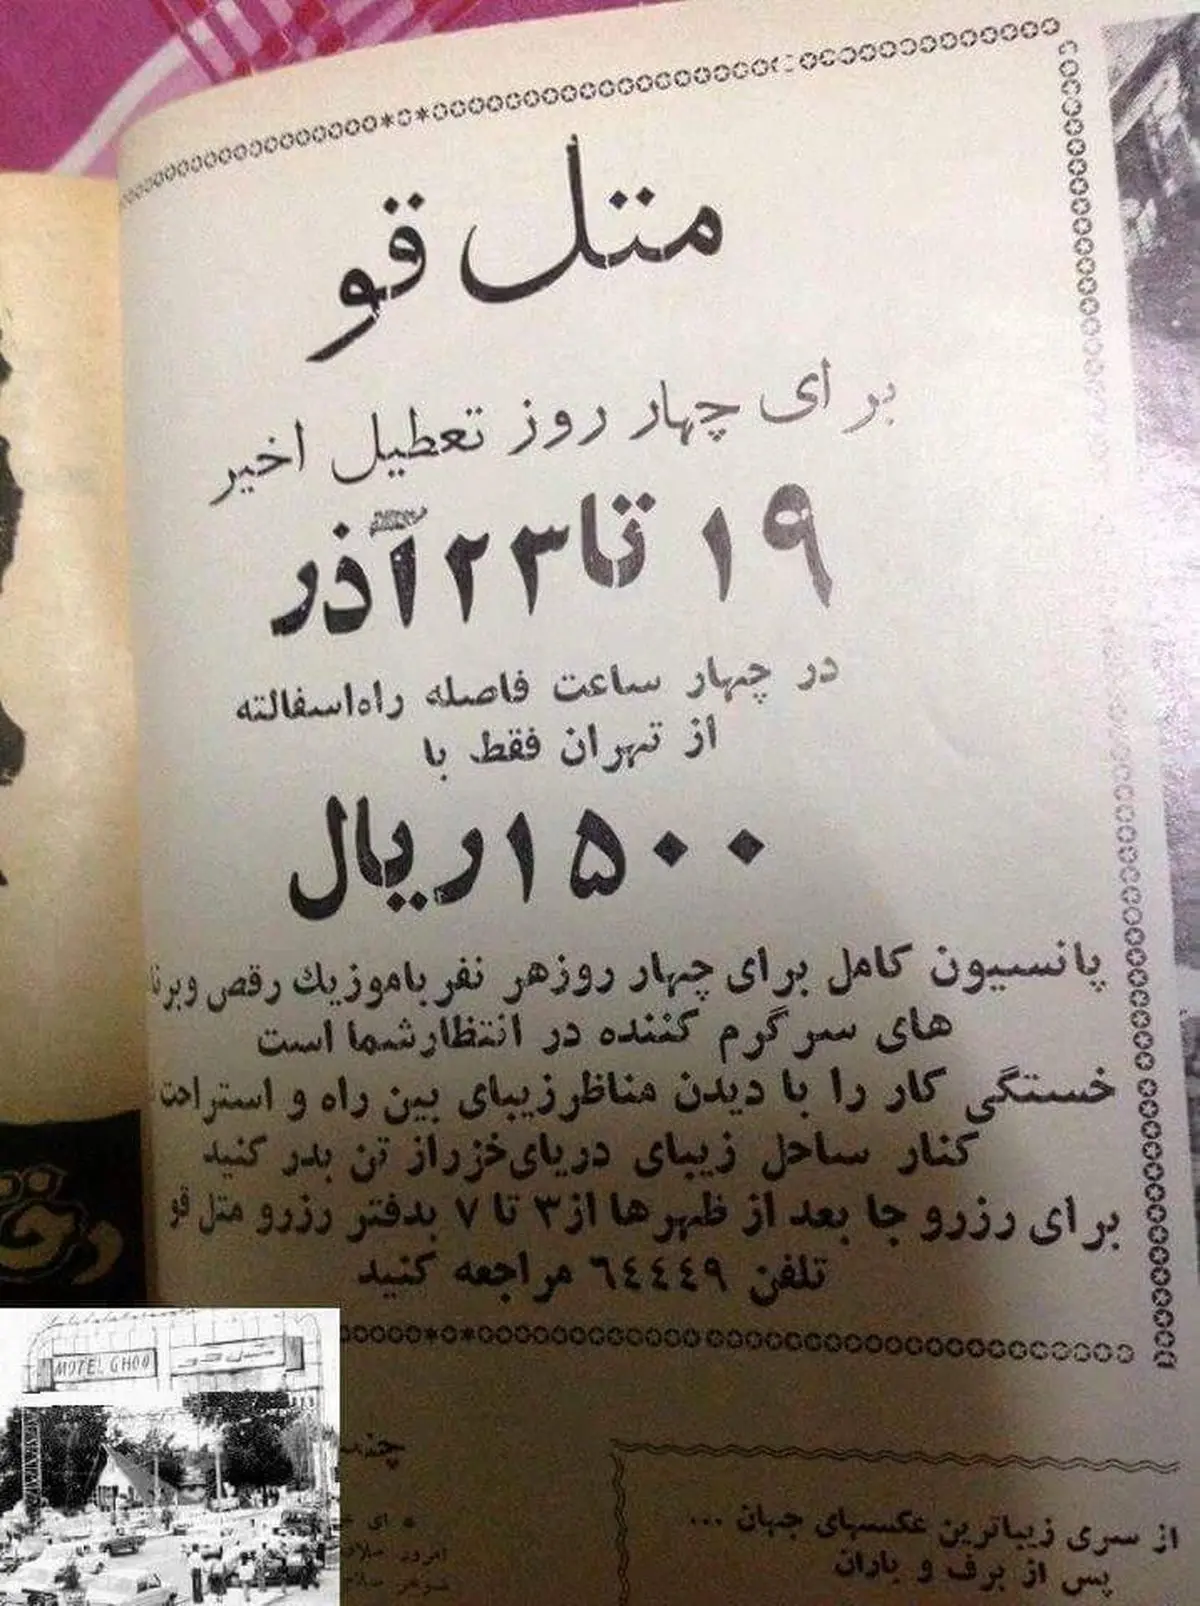 متل قو
برای چهار روز تعطیل اخیر
۱۹ تا ۲۳ آذر
در چهار ساعت فاصله راه اسفالته
از تهران فقط با
۱۵۰۰ ریال
پانسیون کامل برای چهار روز هر نفر با موزیك رقص و برنا
های سرگرم کننده در انتظار شما است
خستگی کار را با دیدن مناظر زیبای بین راه و استراحت
کنار ساحل زیبای دریای خزر از تن بدر کنید
برای رزرو جا بعد از ظهرها از ۳ تا ۷ بدفتر رزرو متل قو
تلفن ٦٤٤٤٩ مراجعه کنید
MOTEL GHOO
متل قو
از سری زیباترین عکسهای جهان ...
پس از برف و باران